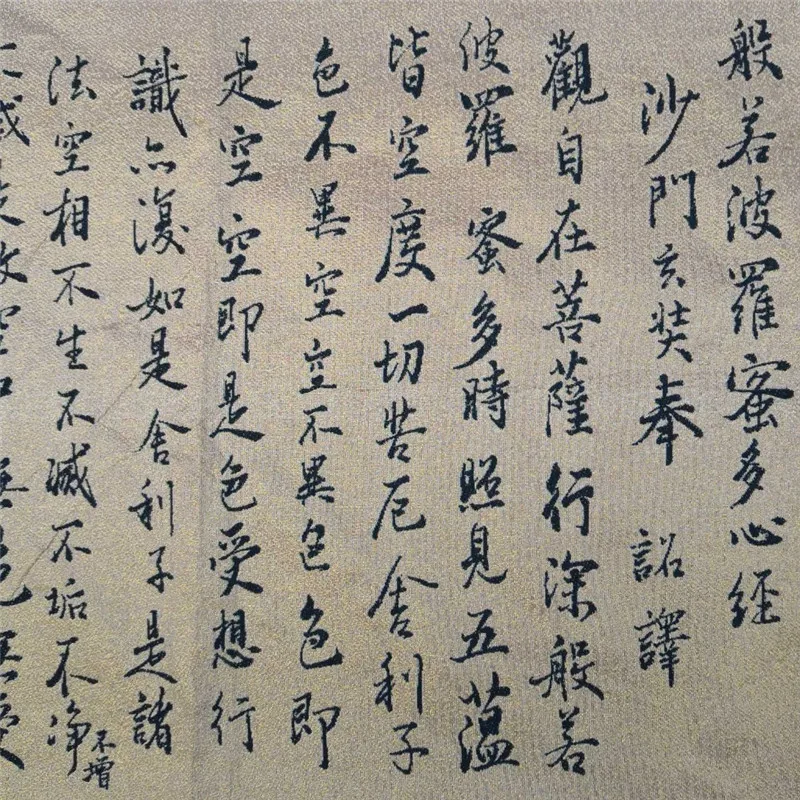 般若波羅蜜多心經
沙門玄奘奉 詔譯
觀自在菩薩行深般若
波羅蜜多時照見五蘊
皆空度一切苦厄舍利子
色不異空空不異色色即
是空空即是色受想行
識亦復如是舍利子是諸
法空相不生不滅不垢不净
不增